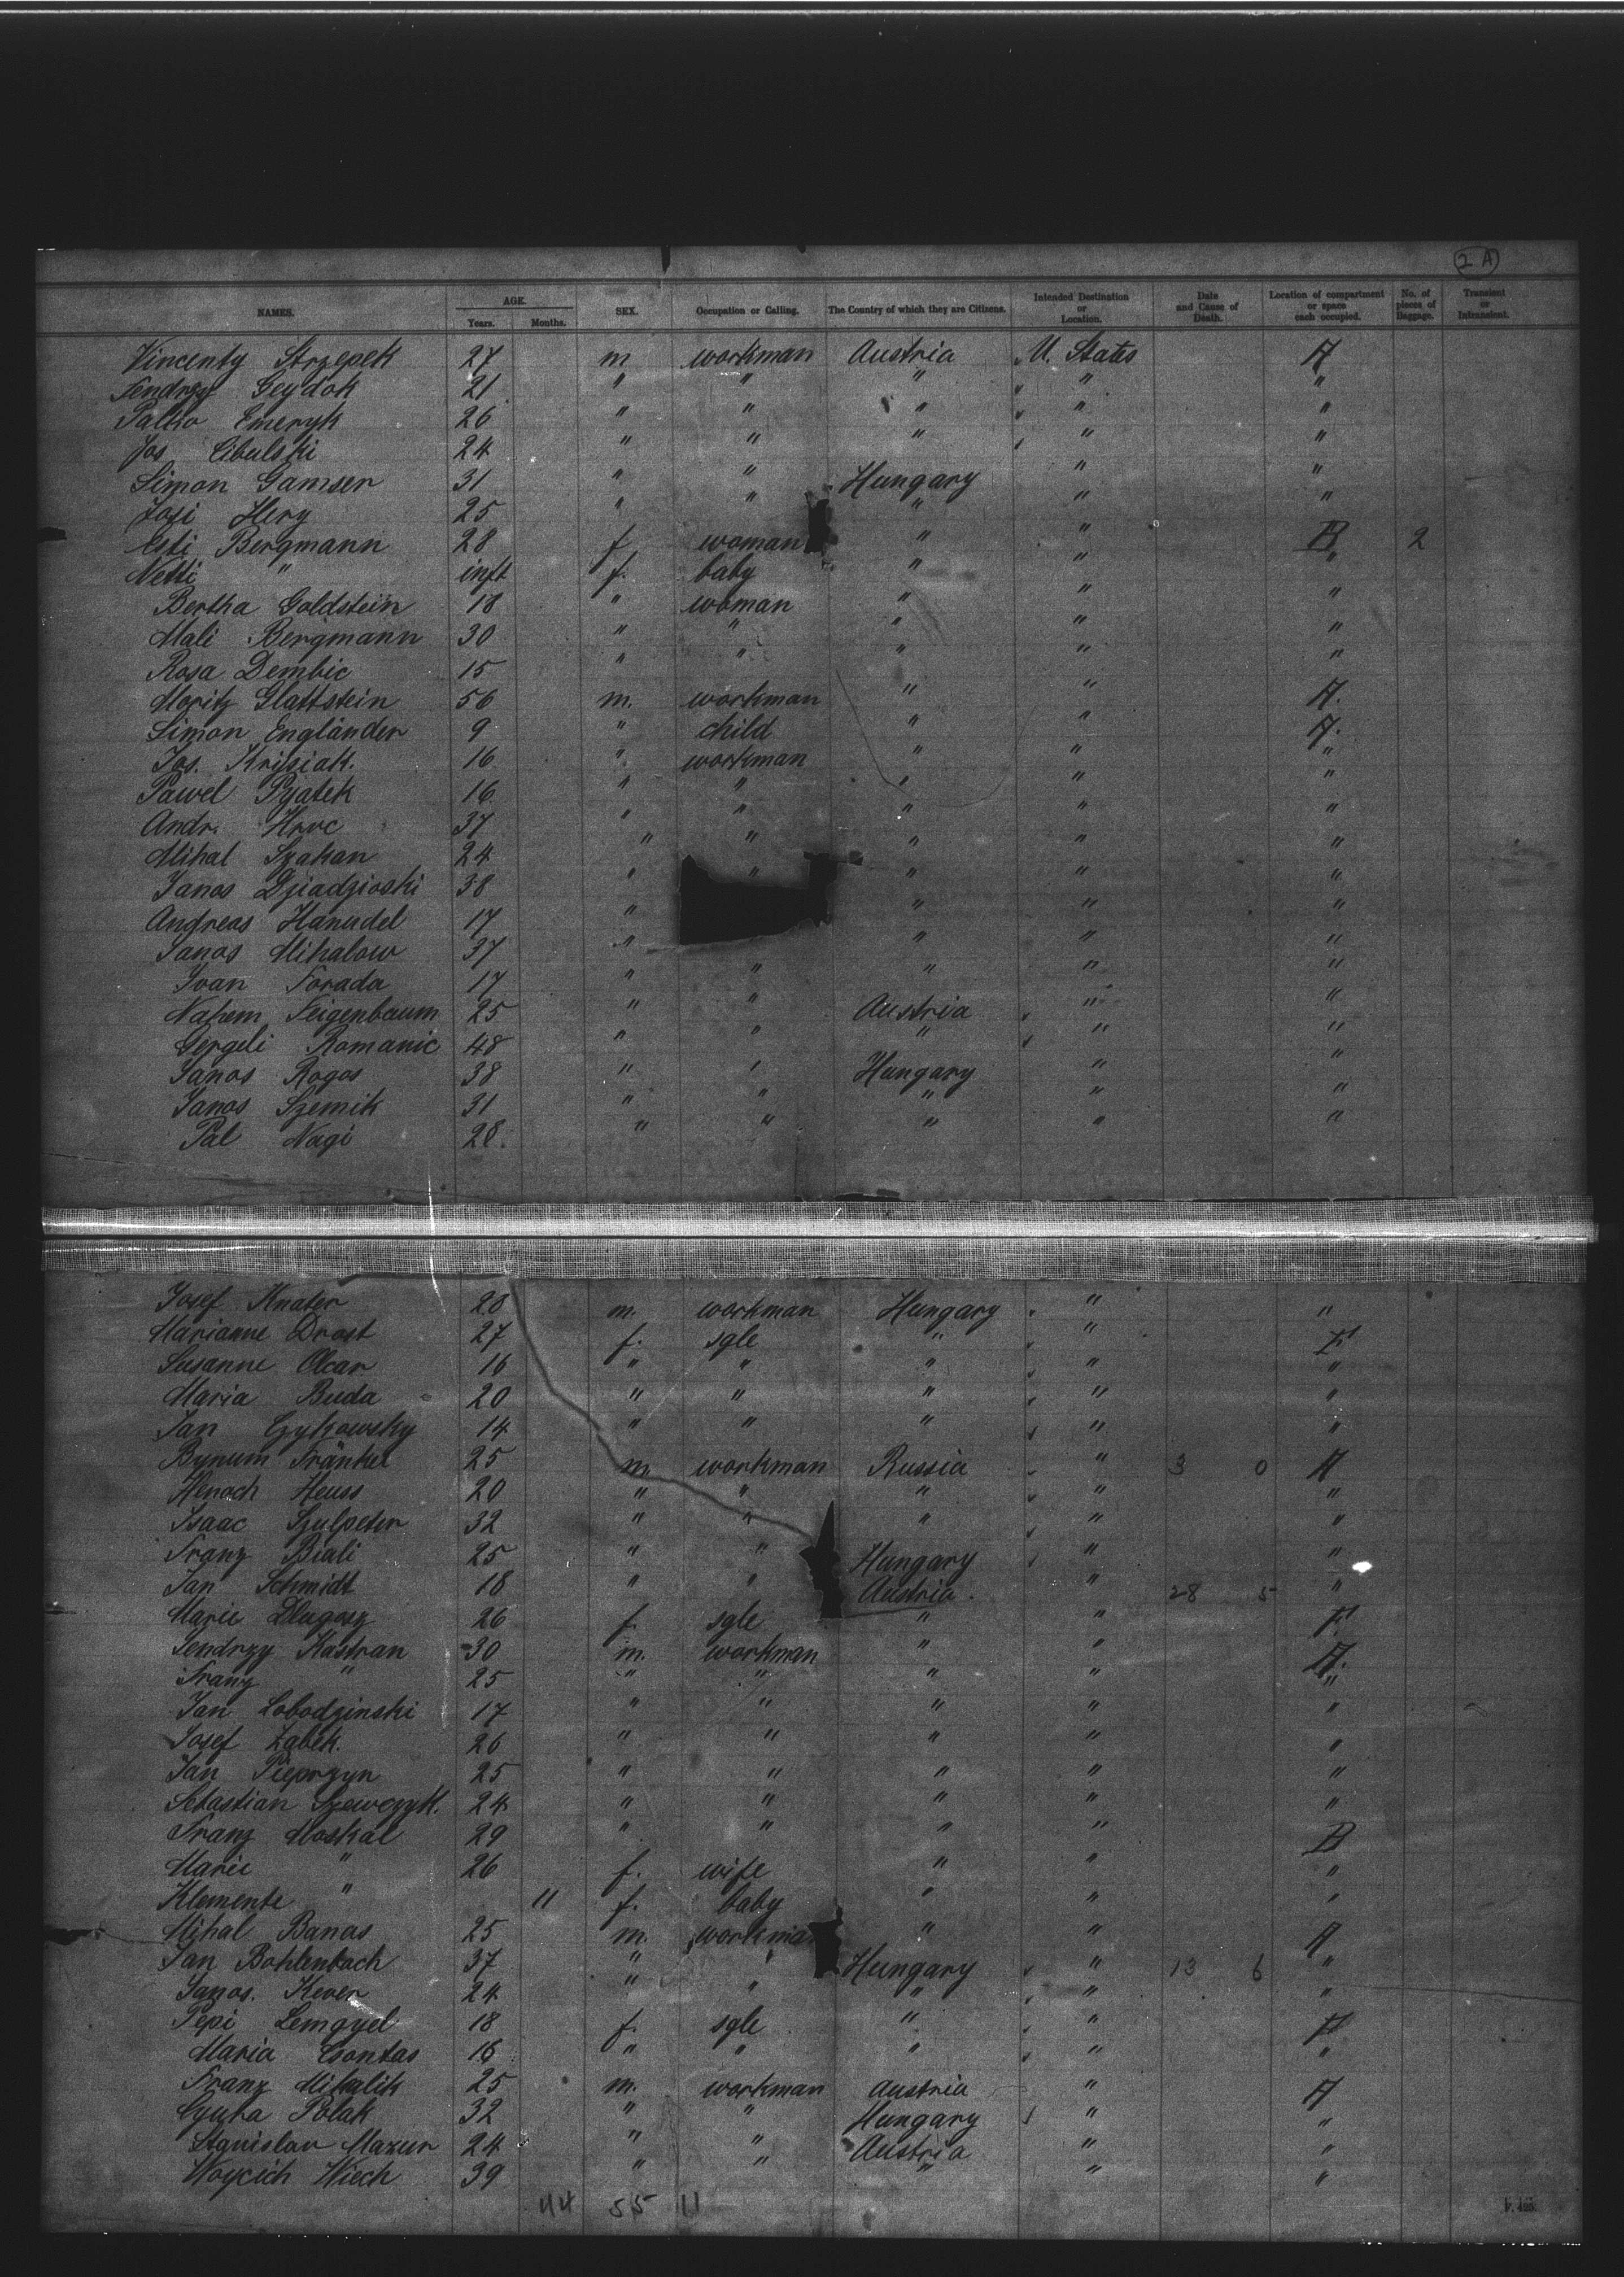 2 A
NAMES. AGE. Years. Months. SEX. Occupation or Calling. The Country of which they are Citizens. Intended Destination or Location. Date and Cause of Death. Location of compartment or space each occupied. No. of pieces of Baggage. Transient or Intransient.
Vincenty Strzepek 27 m workman Austria U. States A
Jendrzy Geydok 21 " " " " "
Palko Emeryk 26 " " " " "
Jos Cibulski 24 " " " " "
Simon Gamser 31 " " Hungary " "
Josi Hery 25 " " " " "
Esti Bergmann 28 f woman " " B 2
Netti " inft f. baby " " "
Bertha Goldstein 18 " woman " " "
Mali Bergmann 30 " " " " "
Rosa Dembic 15 " " " " "
Moritz Glattstein 56 m. workman " " A.
Simon Engländer 9 " child " " A.
Jos. Krisiak. 16 " workman " " "
Pawel Pyatek 16 " " " " "
Andr. 37 " " " " "
Mihal Szakan 24 " " " " "
Janos Dziadzioski 38 " " " " "
Andreas Hanudel 17 " " " "
Janos Mihalow 37 " " " "
Ivan Forada 17 " " " " "
Nahem Feigenbaum 25 " " Austria " "
Gergeli Romanic 48 " " " " "
Janos Rogos 38 " " Hungary " "
Janos Szemik 31 " " " " "
Pal Nagi 28. " " " " "
Josef Knater 28 m. workman Hungary " "
Marianne Drost 27 f. sgle " " F
Susanne Olcar 16 " " " " "
Maria Buda 20 " " " " "
Jan Czykowsky 14 " " " " "
Bynum Fränkel 25 m workman Russia " 3 0 A
Henoch Heuss 20 " " " " "
Isaac Szulpeter 32 " " " " "
Franz Biali 25 " " Hungary " "
Jan Schmidt 18 " " Austria. " 28 5 "
Marie Dlugosz 26 f. sgle " " F
Jendrzy Kastran 30 m. workman " " A.
Franz " 25 " " " " "
Jan Lobodzinski 17 " " " " "
Josef Zabek. 26 " " " " "
Jan Pieprzyn 25 " " " " "
Sebastian Szewczyk. 24 " " " " "
Franz Moskal 29 " " " " B
Marie " 26 f. wife " " "
Klemente " 11 f. baby " " "
Mihal Banas 25 m. workman " " A
Jan Bohlenbach 37 " " Hungary " 13 6 "
Janos. Kever 24 " " " " "
Pepi Lemgyel 18 f. sgle " " F
Maria Csontas 16 " " " " "
Franz Mihalik 25 m. workman Austria " A
Gyura Polak 32 " " Hungary " "
Stanislav Mazur 24 " " Austria " "
Woycich Wiech 39 " " " " "
44 55 11